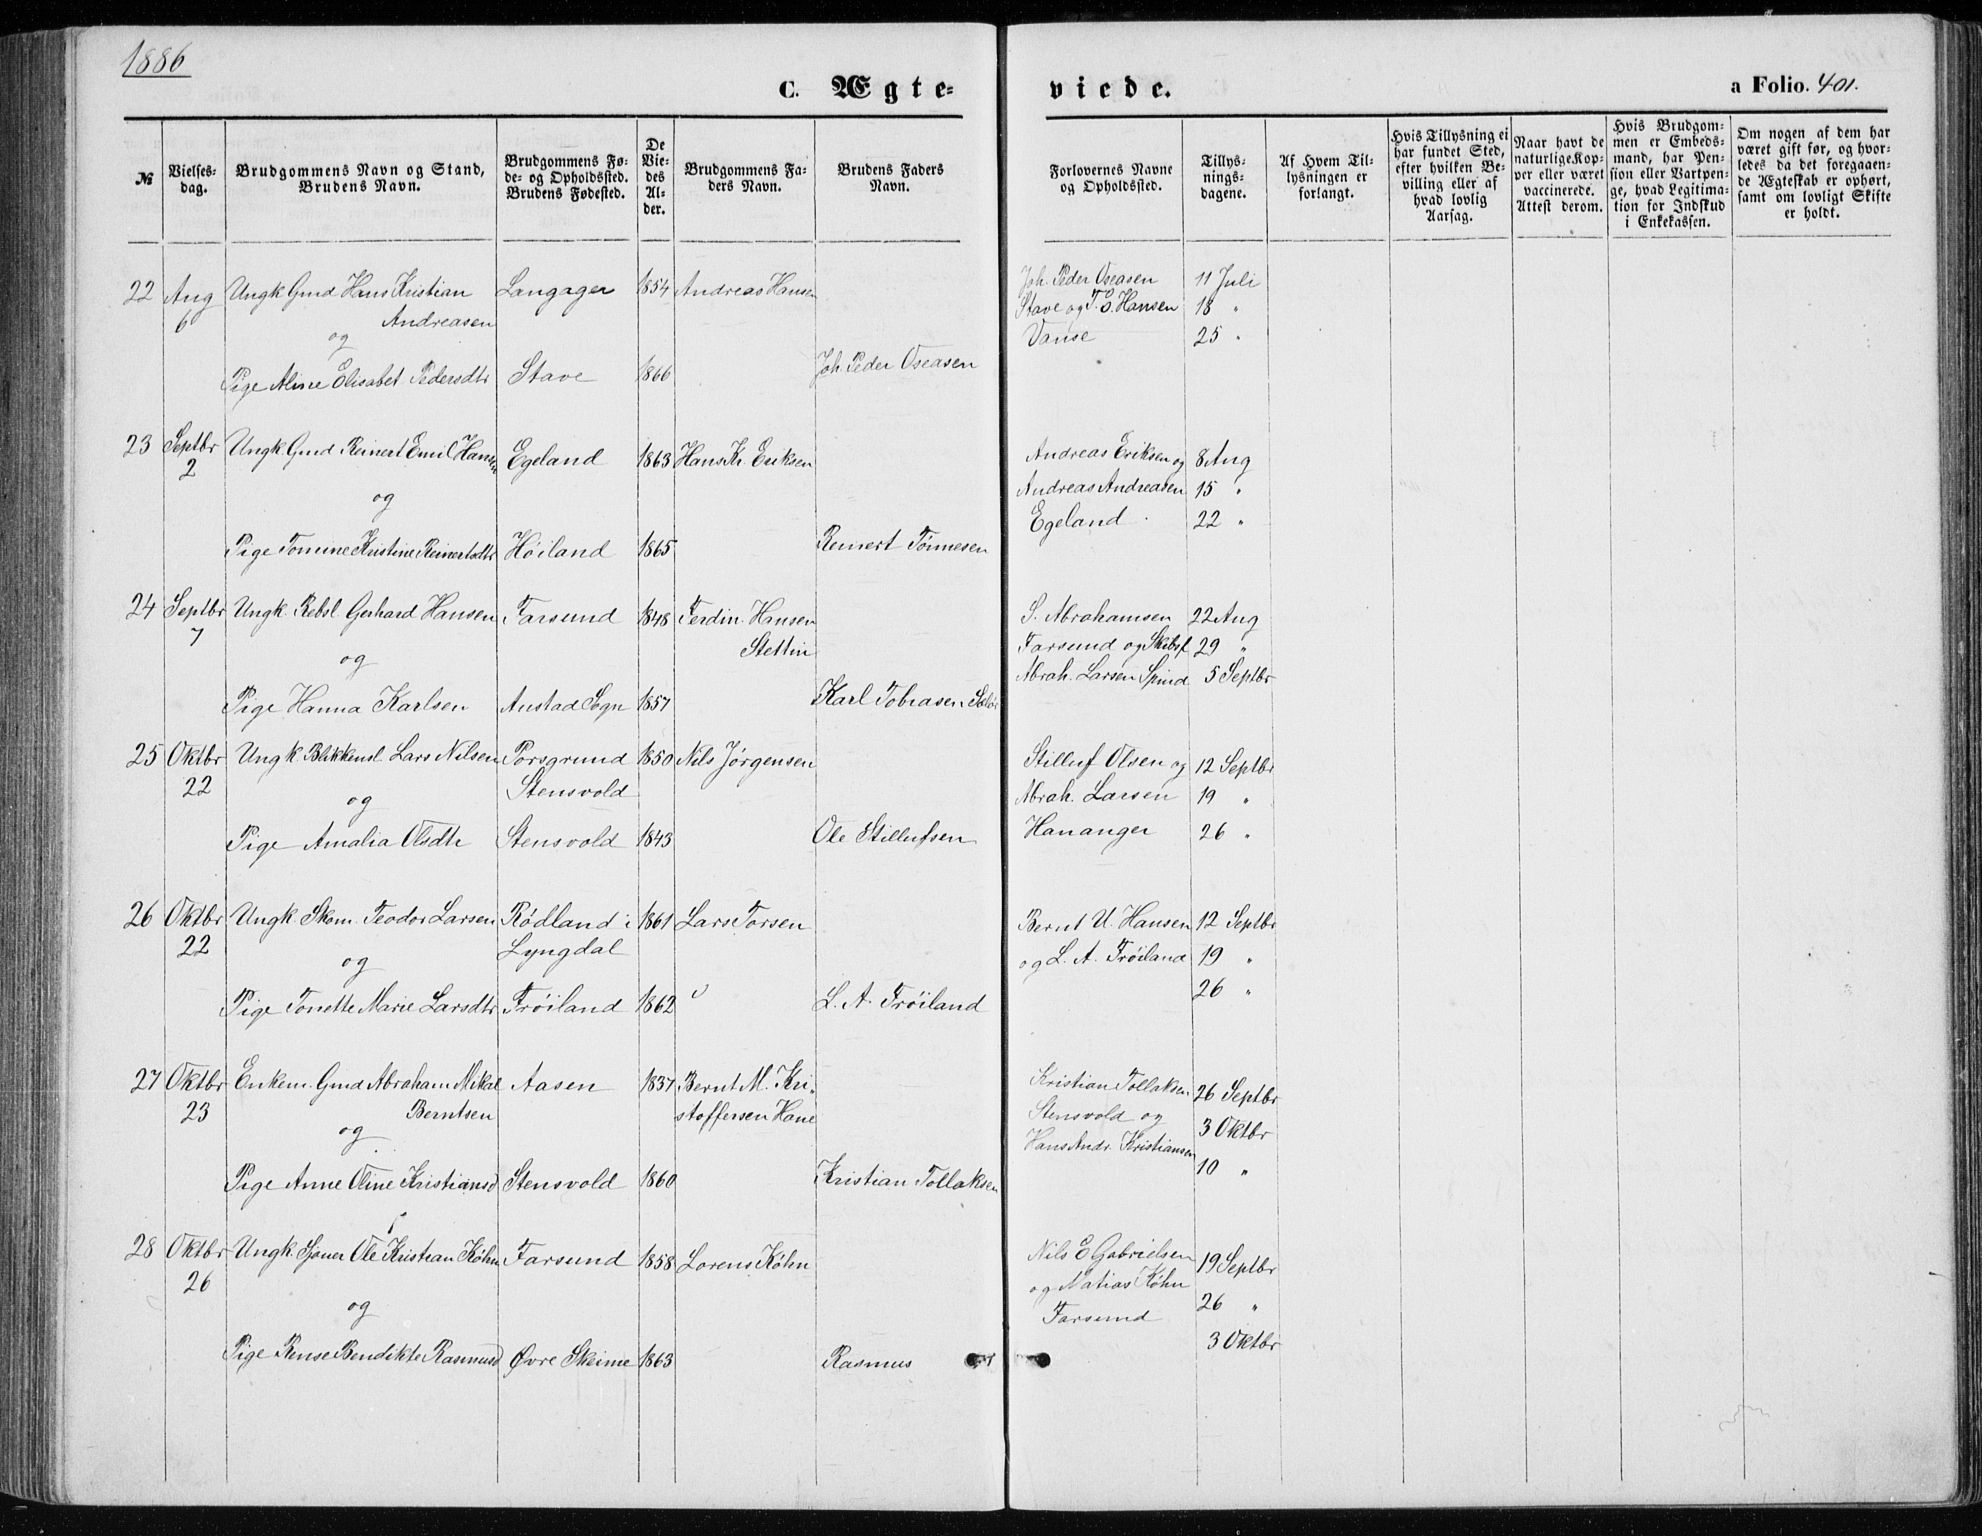 1886
C. Ægte=
viede.
a Folio. 401.
№
Vielses=
dag.
Brudgommens Navn og Stand,
Brudens Navn.
Brudgommens Fø=
de= og Opholdssted.
Brudens Fødested.
De
Vie=
des
Al=
der.
Brudgommens Fa=
ders Navn.
Brudens Faders
Navn.
Forlovernes Navne
og Opholdssted.
Tillys=
nings=
dagene.
Af Hvem Til=
lysningen er
forlangt.
Hvis Tillysning ei
har fundet Sted,
efter hvilken Be=
villing eller af
hvad lovlig
Aarsag.
Naar havt de
naturlige Kop=
per eller været
vaccinerede.
Attest derom.
Hvis Brudgom=
men er Embeds=
mand, har Pen=
sion eller Vartpen=
ge, hvad Legitima=
tion for Indskud
i Enkekassen.
Om nogen af dem har
været gift før, og hvor=
ledes da det foregaaen=
de Ægteskab er ophørt,
samt om lovligt Skifte
er holdt.
22 Aug Ungk Gmd Hans Kristian Langager 1854 Andreas Hansen Joh. Peder Oseasen 11 Juli
6 Andreasen Stave og T. O. Hansen 18 "
og Vanse 25 "
Pige Aline Elisabet Pedersdtr Stave 1866 Joh. Peder Oseasen
23 Septbr Ungk. Gmd Reinert Emil Hansen Egeland 1863 Hans Kr. Eriksen Andreas Eriksen og 8 Aug
2 og Andreas Andreasen 15 "
Egeland. 22 "
Pige Tomine Kristine Reinertsdtr Høiland 1865 Reinert Tønnesen
24 Septbr Ungk. Rebsl Gerhard Hansen Farsund 1848 Ferdin. Hansen S. Abrahamsen 22 Aug
7 Stettin Farsund og Skibsf 29 "
og Abrah. Larsen Spind 5 Septbr
Pige Hanna Karlsen Austad Sogn 1857 Karl Tobiasen
25 Oktbr Ungk Blikkensl Lars Nilsen Porsgrund 1850 Nils Jørgensen Stilluf Olsen og 12 Septbr
22 og Stensvold Abrah. Larsen 19 "
Pige Amalia Olsdtr Stensvold 1843 Ole Stillufsen Hananger 26 "
26 Oktbr Ungk Skom. Teodor Larsen Rødland i 1861 Lars Torsen Bernt U. Hansen 12 Septbr
22 og Lyngdal og L. A. Trøiland 19 "
Pige Tonette Marie Larsdtr Trøiland 1862 " L. A. Trøiland 26 "
27 Oktbr Enkem. Gmd Abraham Mikal Aasen 1837 Bernt M. Kri= Kristian Tollaksen 26 Septbr
23 Berntsen stoffersen Hane Stensvold og 3 Oktbr
og Hans Andr. Kristiansen 10 "
Pige Anne Oline Kristiansd Stensvold 1860 Kristian Tollaksen
28 Oktbr Ungk. Sjømer Ole Kristian Køhn Farsund 1858 Lorens Køhn Nils E Gabrielsen 19 Septbr
26 og Matias Køhn 26 "
og Farsund 3 Oktbr
Pige Rense Bendikte Rasmusd Øvre Skeime 1863 Rasmus